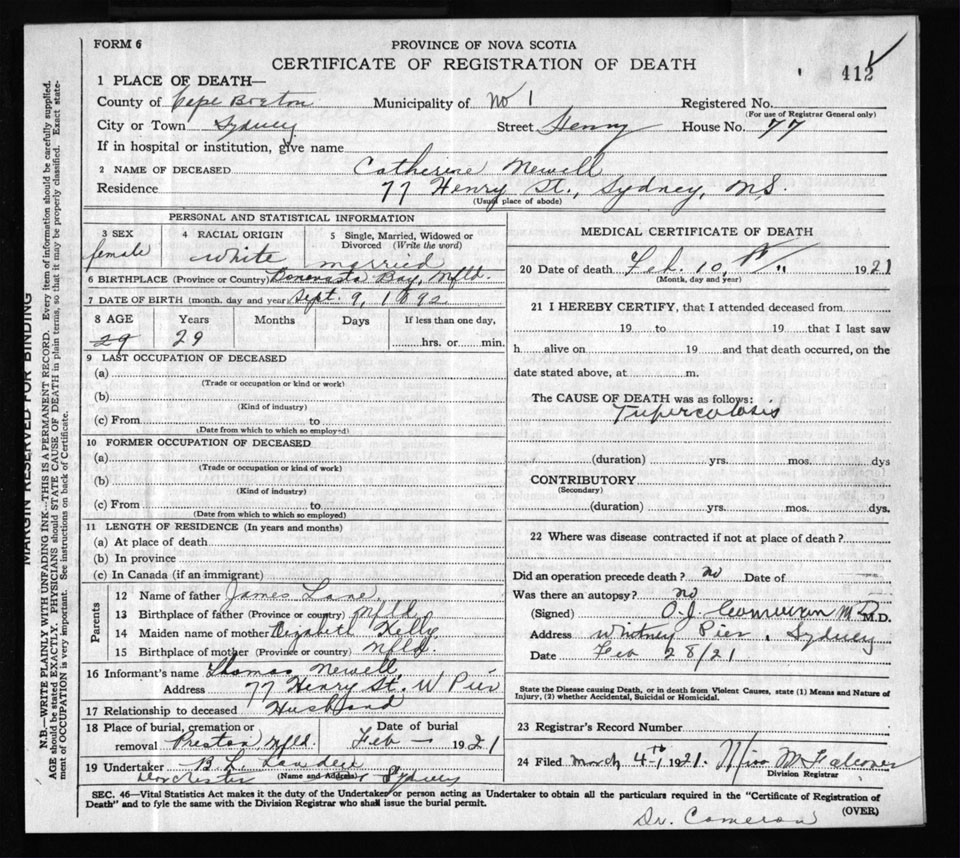 FORM 6
PROVINCE OF NOVA SCOTIA
CERTIFICATE OF REGISTRATION OF DEATH
412
1 PLACE OF DEATH—
County of Cape Breton Municipality of No 1 Registered No.
(For use of Registrar General only)
City or Town Sydney Street Henry House No. 77
If in hospital or institution, give name
2 NAME OF DECEASED Catherine Newell
Residence 77 Henry St., Sydney, N.S.
(Usual place of abode)
PERSONAL AND STATISTICAL INFORMATION
3 SEX 4 RACIAL ORIGIN 5 Single, Married, Widowed or Divorced (Write the word)
female white married
6 BIRTHPLACE (Province or Country) Bay, Nfld.
7 DATE OF BIRTH (month, day and year) Sept. 9, 1892
8 AGE Years Months Days If less than one day,
29 29 hrs. or min.
9 LAST OCCUPATION OF DECEASED
(a)
(Trade or occupation or kind or work)
(b)
(Kind of industry)
(c) From to
(Date from which to which so employed)
10 FORMER OCCUPATION OF DECEASED
(a)
(Trade or occupation or kind of work)
(b)
(Kind of industry)
(c) From to
(Date from which to which so employed)
11 LENGTH OF RESIDENCE (In years and months)
(a) At place of death
(b) In province
(c) In Canada (if an immigrant)
Parents
12 Name of father James Lane
13 Birthplace of father (Province or country) Nfld
14 Maiden name of mother Elizabeth Kelly
15 Birthplace of mother (Province or country) Nfld.
16 Informant's name Thomas Newell
Address 77 Henry St. W Pier
17 Relationship to deceased Husband
18 Place of burial, cremation or removal Nfld. Date of burial Feb — 1921
19 Undertaker B.L.
(Name and Address)
Dorchester Sydney
MEDICAL CERTIFICATE OF DEATH
20 Date of death Feb. 10, " 1921
(Month, day and year)
21 I HEREBY CERTIFY, that I attended deceased from
19 to 19 that I last saw
h alive on 19 and that death occurred, on the
date stated above, at m.
The CAUSE OF DEATH was as follows:
Tuberculosis
(duration) yrs. mos. dys
CONTRIBUTORY
(Secondary)
(duration) yrs. mos. dys.
22 Where was disease contracted if not at place of death?
Did an operation precede death? No Date of
Was there an autopsy? No
(Signed) M.D. M.D.
Address Whitney Pier, Sydney
Date Feb 28/21
State the Disease causing Death, or in death from Violent Causes, state (1) Means and Nature of
Injury, (2) whether Accidental, Suicidal or Homicidal.
23 Registrar's Record Number
24 Filed March 4th 1921.
Division Registrar
SEC. 46—Vital Statistics Act makes it the duty of the Undertaker or person acting as Undertaker to obtain all the particulars required in the "Certificate of Registration of
Death" and to fyle the same with the Division Registrar who shall issue the burial permit.
(OVER)
Dr. Cameron
MARGIN RESERVED FOR BINDING
N.B.—WRITE PLAINLY WITH UNFADING INK—THIS IS A PERMANENT RECORD. Every item of information should be carefully supplied.
AGE should be stated EXACTLY. PHYSICIANS should STATE CAUSE OF DEATH in plain terms, so that it may be properly classified. Exact state-
ment of OCCUPATION is very important. See instructions on back of Certificate.